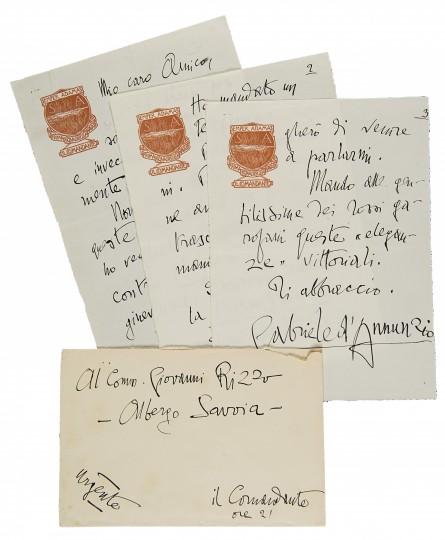 Mio caro Amico,
e invec
mente
Non
queste
ho ve
cont
ginev
2
Ho mandato un
Te
ni.
ne an
trasc
man
la
3
gherò di venire
a parlarmi.
Mando alle gen-
tilissime dei rossi ga-
rofani queste «elegan-
ze» vittoriali.
Ti abbraccio.
Gabriele d'Annunzio
Al Comm. Giovanni Rizzo
– Albergo Savoia –
urgente
il Comandante
ore 21